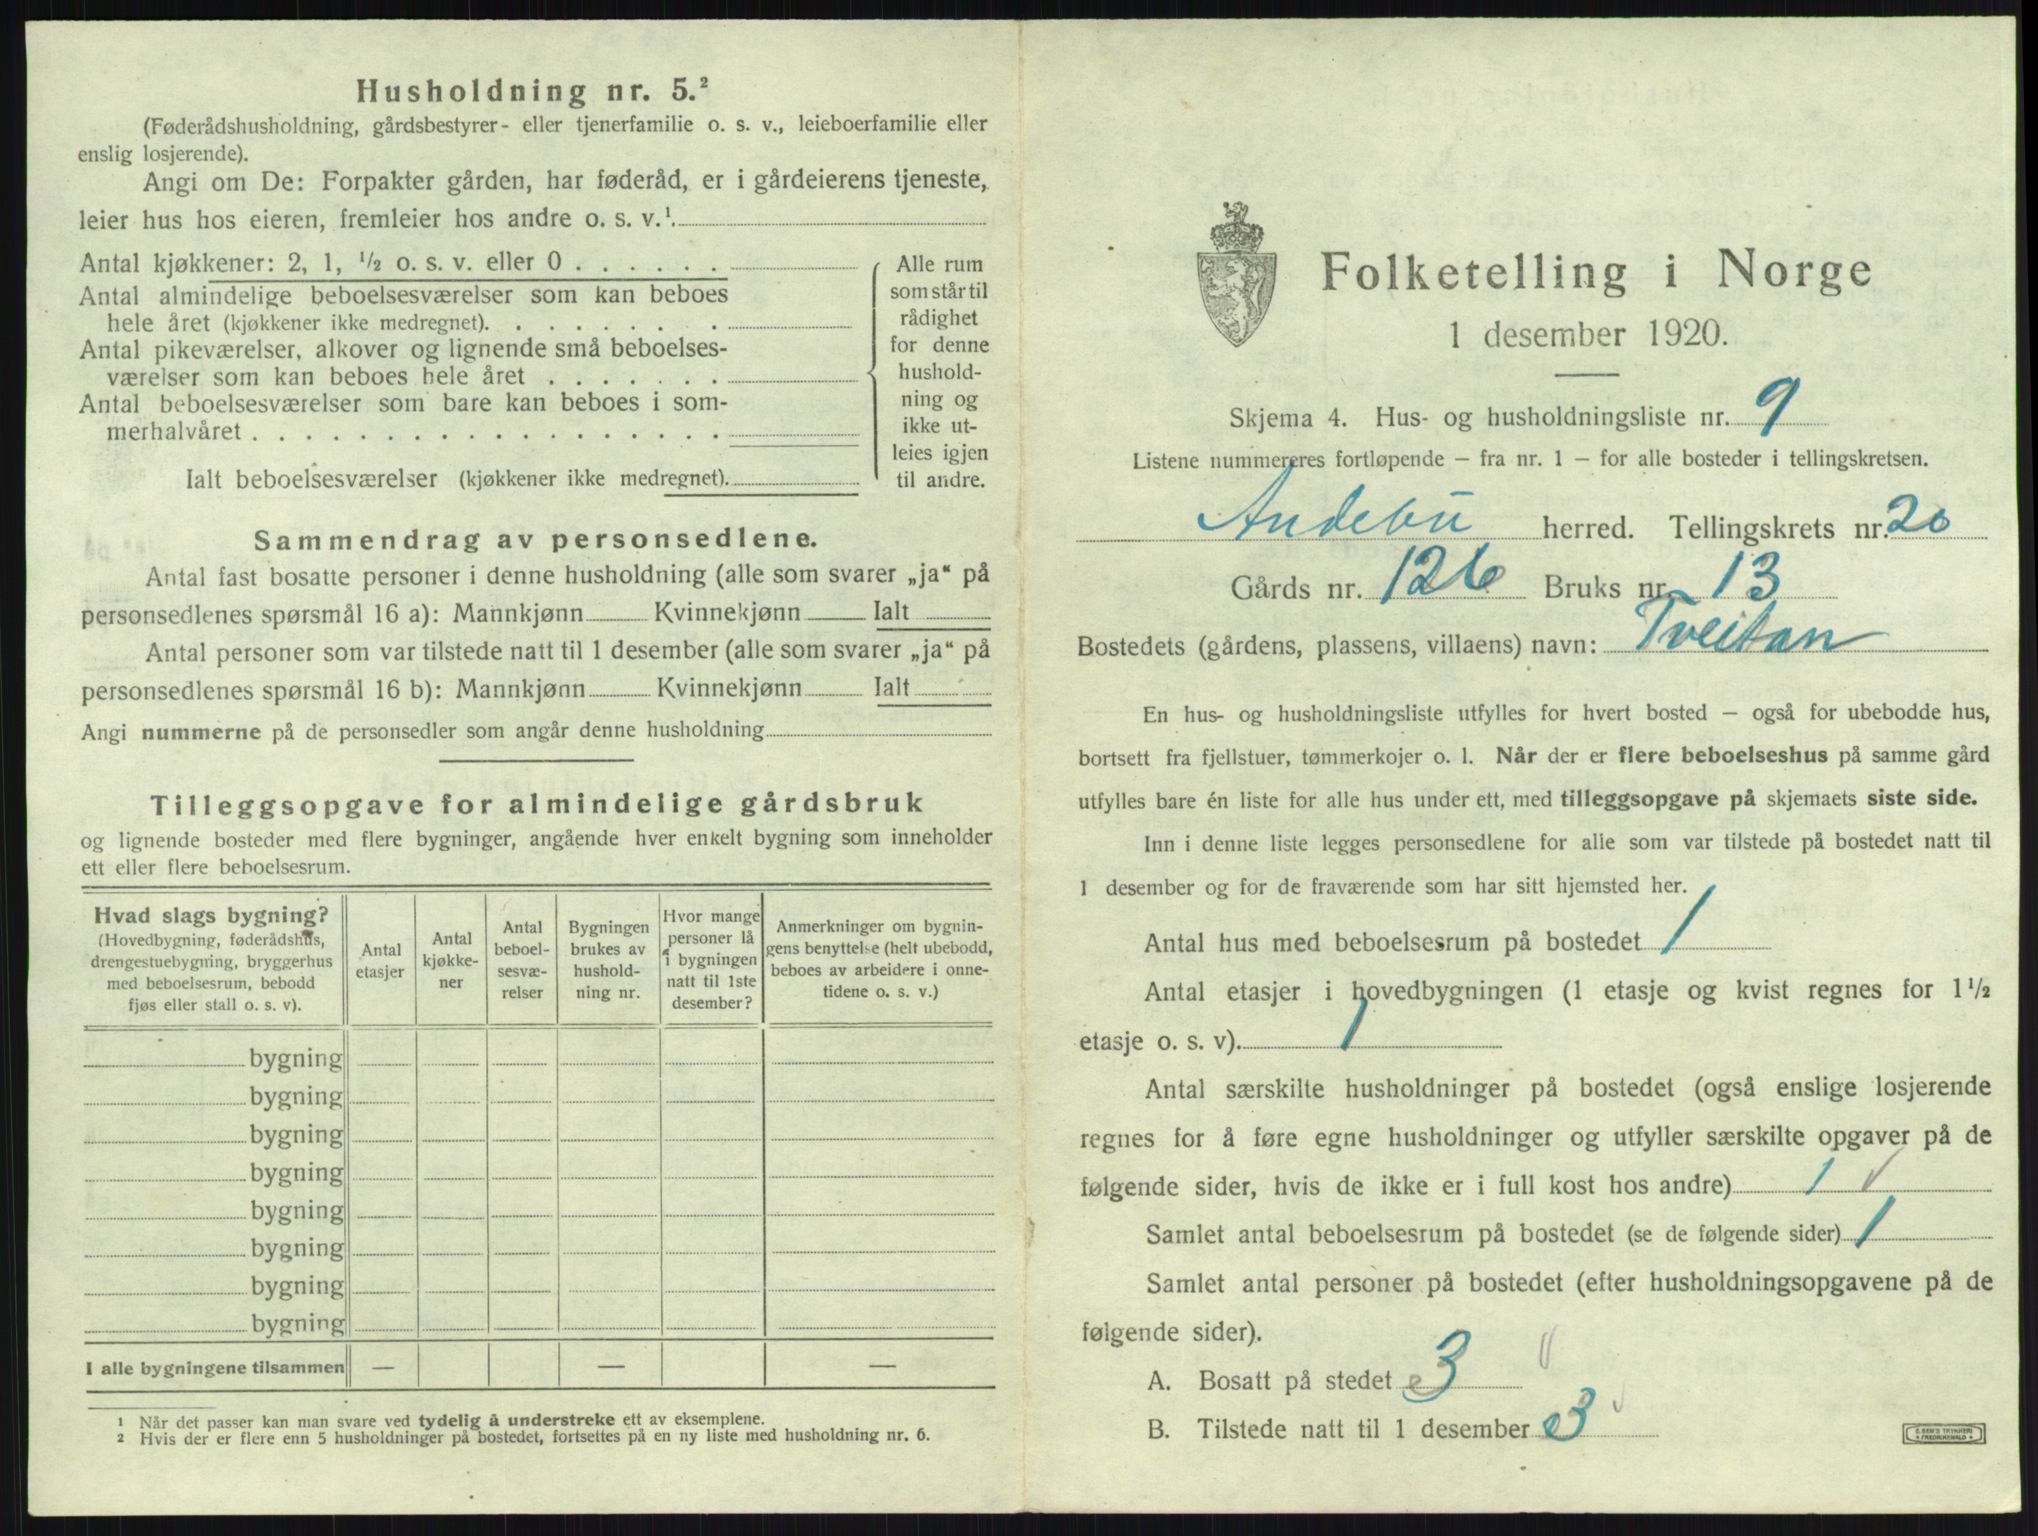 Husholdning nr. 5.²
(Føderådshusholdning, gårdsbestyrer- eller tjenerfamilie o. s. v., leieboerfamilie eller
enslig losjerende).
Angi om De: Forpakter gården, har føderåd, er i gårdeierens tjeneste,
leier hus hos eieren, fremleier hos andre o. s. v.¹.
Antal kjøkkener: 2, 1, ½ o. s. v. eller 0 . . . . . .
Antal almindelige beboelsesværelser som kan beboes
hele året (kjøkkener ikke medregnet). . . . . . . .
Antal pikeværelser, alkover og lignende små beboelses-
værelser som kan beboes hele året . . . . . . .
Antal beboelsesværelser som bare kan beboes i som-
merhalvåret . . . . . . . . . . . . . . . . . .
Ialt beboelsesværelser (kjøkkener ikke medregnet).
Alle rum
som står til
rådighet
for denne
hushold-
ning og
ikke ut-
leies igjen
til andre.
Sammendrag av personsedlene.
Antal fast bosatte personer i denne husholdning (alle som svarer „ja“ på
personsedlenes spørsmål 16 a): Mannkjønn Kvinnekjønn Ialt
Antal personer som var tilstede natt til 1 desember (alle som svarer „ja“ på
personsedlenes spørsmål 16 b): Mannkjønn Kvinnekjønn Ialt
Angi nummerne på de personsedler som angår denne husholdning
Tilleggsopgave for almindelige gårdsbruk
og lignende bosteder med flere bygninger, angående hver enkelt bygning som inneholder
ett eller flere beboelsesrum.
Hvad slags bygning?
(Hovedbygning, føderådshus,
drengestuebygning, bryggerhus
med beboelsesrum, bebodd
fjøs eller stall o. s. v).
Antal
etasjer
Antal
kjøkke-
ner
Antal
beboel-
sesvæ-
relser
Bygningen
brukes av
hushold-
ning nr.
Hvor mange
personer lå
i bygningen
natt til 1ste
desember?
Anmerkninger om bygnin-
gens benyttelse (helt ubebodd,
beboes av arbeidere i onne-
tidene o. s. v.)
bygning
bygning
bygning
bygning
bygning
bygning
bygning
bygning
I alle bygningene tilsammen — — —
¹ Når det passer kan man svare ved tydelig å understreke ett av eksemplene.
² Hvis der er flere enn 5 husholdninger på bostedet, fortsettes på en ny liste med husholdning nr. 6.
Folketelling i Norge
1 desember 1920.
Skjema 4. Hus- og husholdningsliste nr. 9
Listene nummereres fortløpende – fra nr. 1 – for alle bosteder i tellingskretsen.
Andebu herred. Tellingskrets nr. 20
Gårds nr. 126 Bruks nr. 13
Bostedets (gårdens, plassens, villaens) navn: Tveitan
En hus- og husholdningsliste utfylles for hvert bosted – også for ubebodde hus,
bortsett fra fjellstuer, tømmerkojer o. l. Når der er flere beboelseshus på samme gård
utfylles bare én liste for alle hus under ett, med tilleggsopgave på skjemaets siste side.
Inn i denne liste legges personsedlene for alle som var tilstede på bostedet natt til
1 desember og for de fraværende som har sitt hjemsted her.
Antal hus med beboelsesrum på bostedet 1
Antal etasjer i hovedbygningen (1 etasje og kvist regnes for 1½
etasje o. s. v). 1
Antal særskilte husholdninger på bostedet (også enslige losjerende
regnes for å føre egne husholdninger og utfyller særskilte opgaver på de
følgende sider, hvis de ikke er i full kost hos andre) 1 ✓
Samlet antal beboelsesrum på bostedet (se de følgende sider) 1
Samlet antal personer på bostedet (efter husholdningsopgavene på de
følgende sider).
A. Bosatt på stedet 3
B. Tilstede natt til 1 desember 3